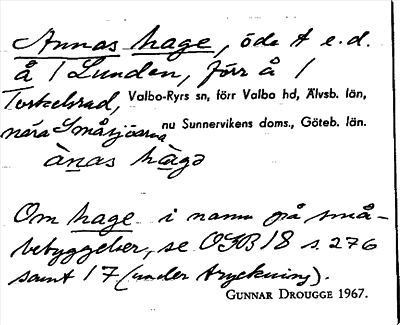 Annas hage, öde t e.d.
å 1 Lunden, förr å 1
Torkelsrud, Valbo-Ryrs sn, förr Valbo hd, Älvsb. län,
nära Småsjöarna nu Sunnervikens doms., Göteb. län.
ànas hàgə
Om hage i namn på små-
bebyggelser, se OGB 18 s. 276
samt 17 (under tryckning).
GUNNAR DROUGGE 1967.